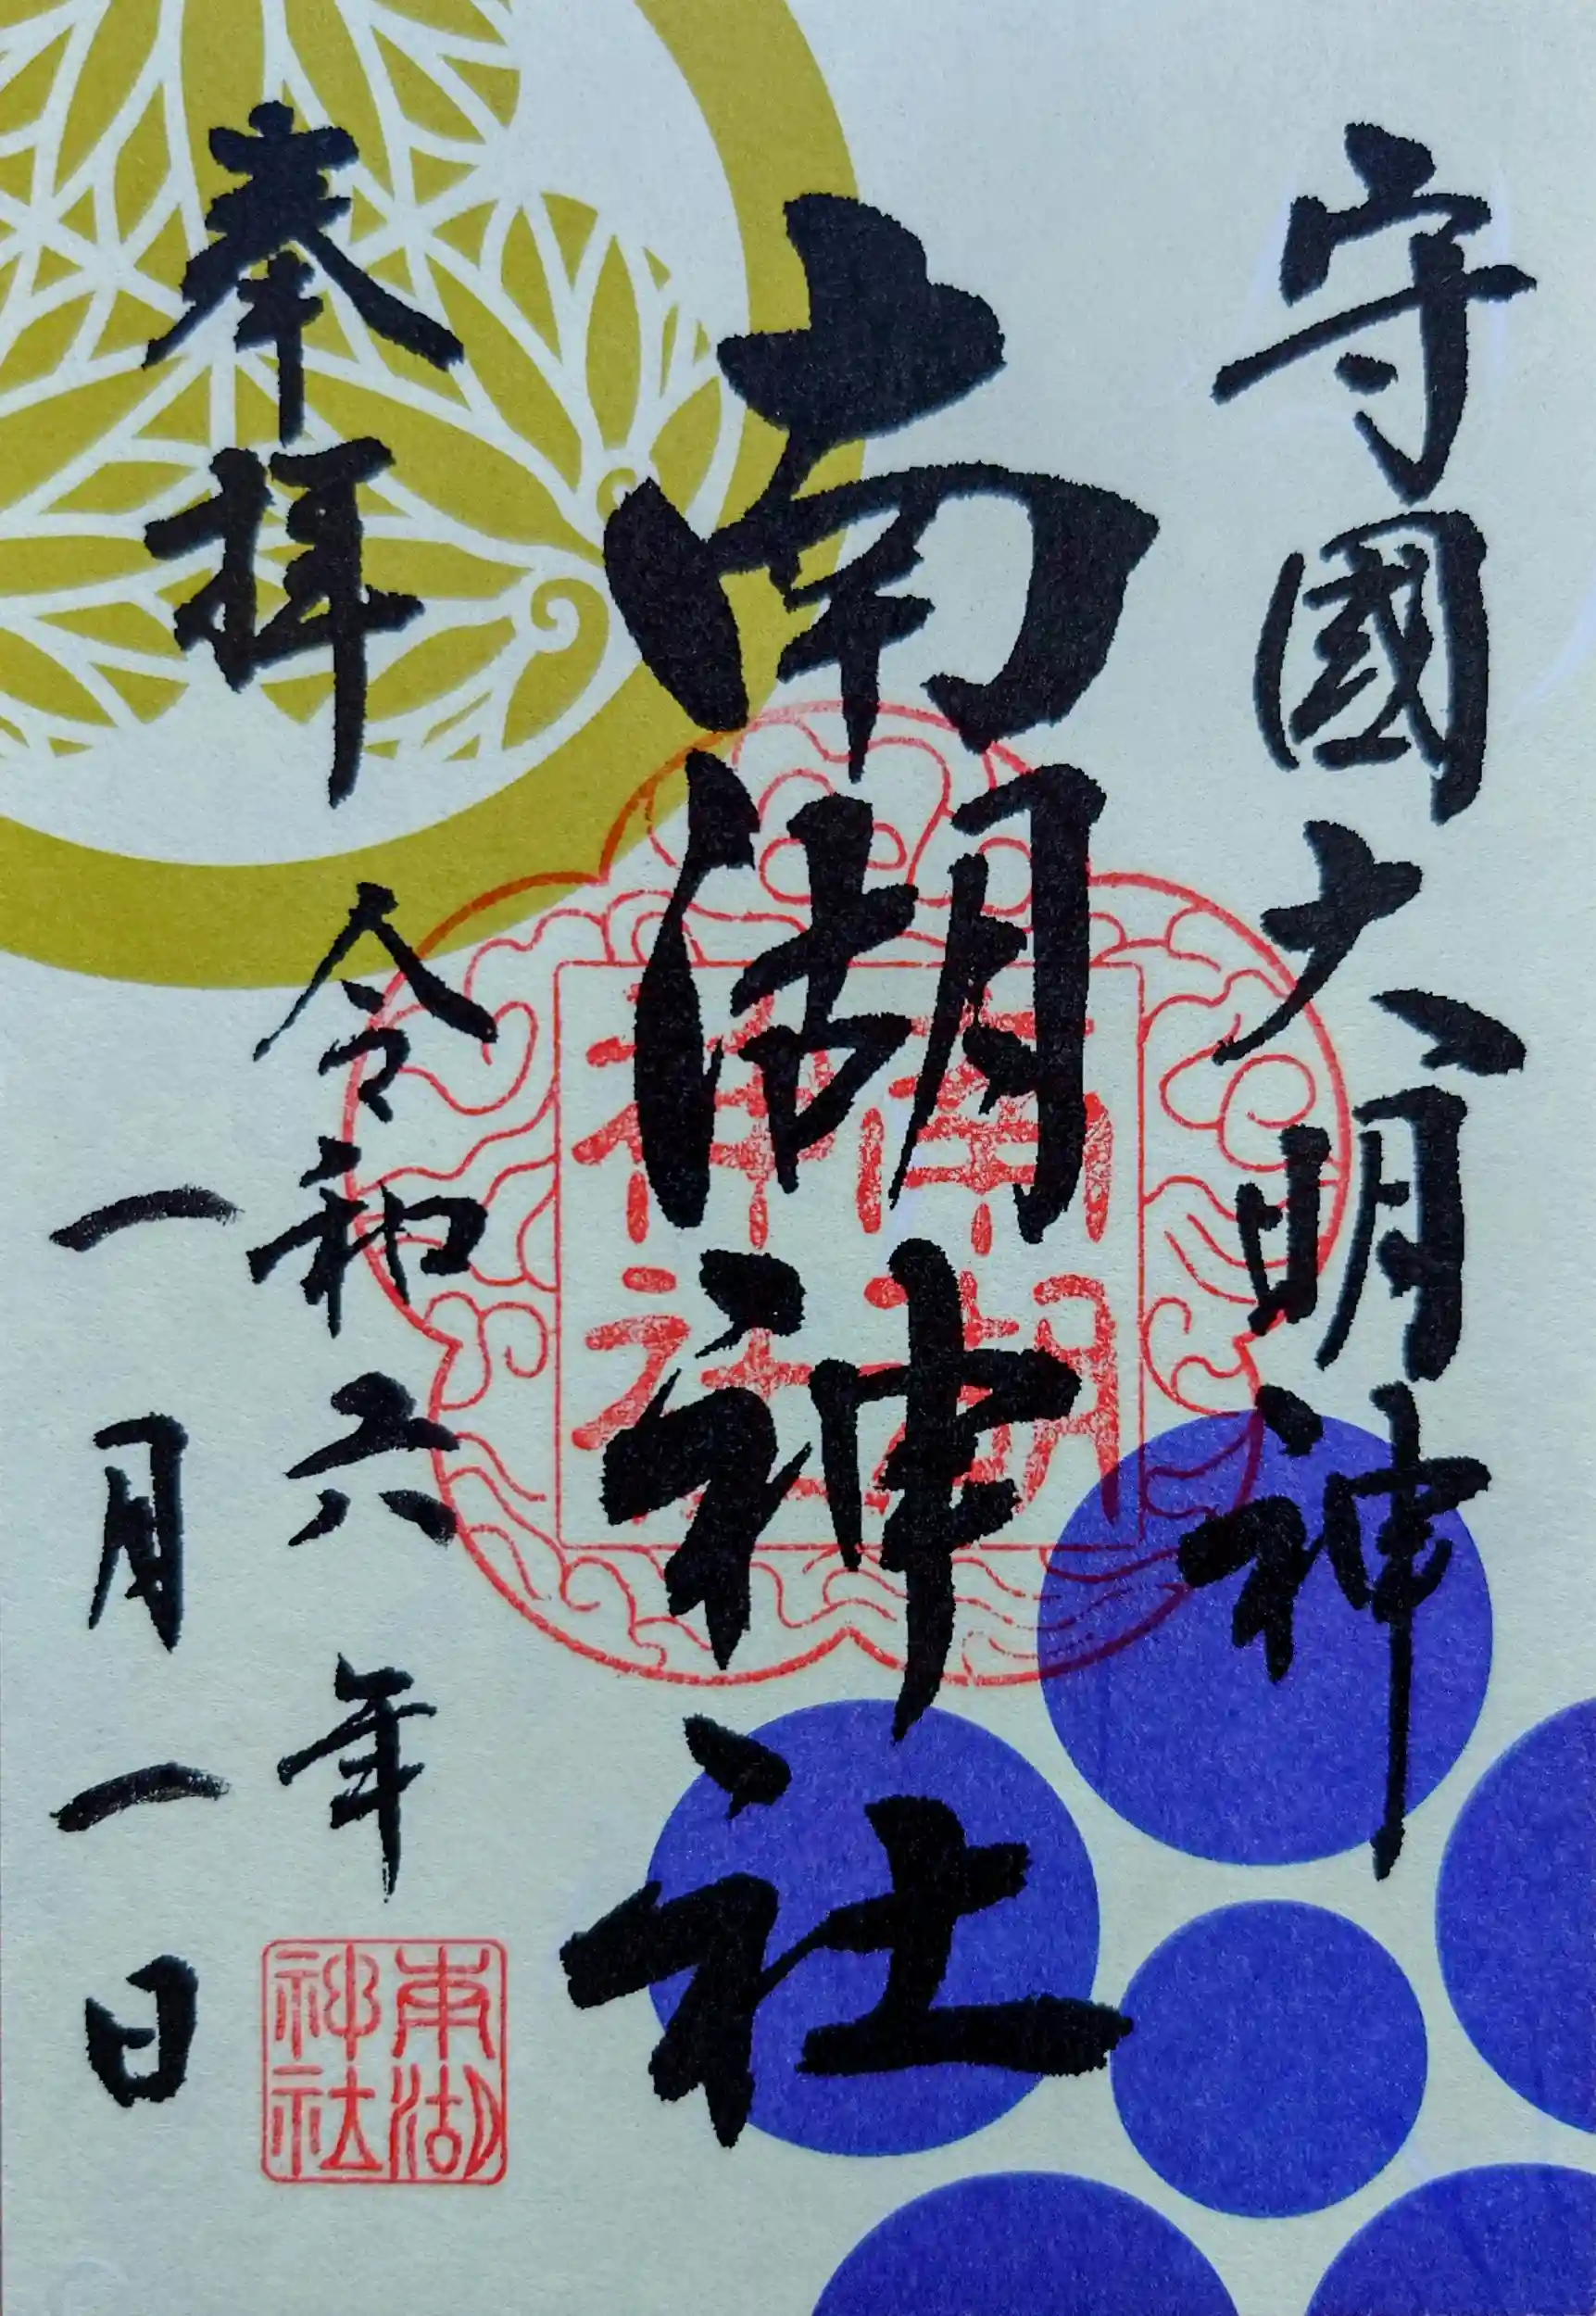 守國大明神
南湖神社
奉拝
令和六年
一月一日
南湖神社
南湖神社